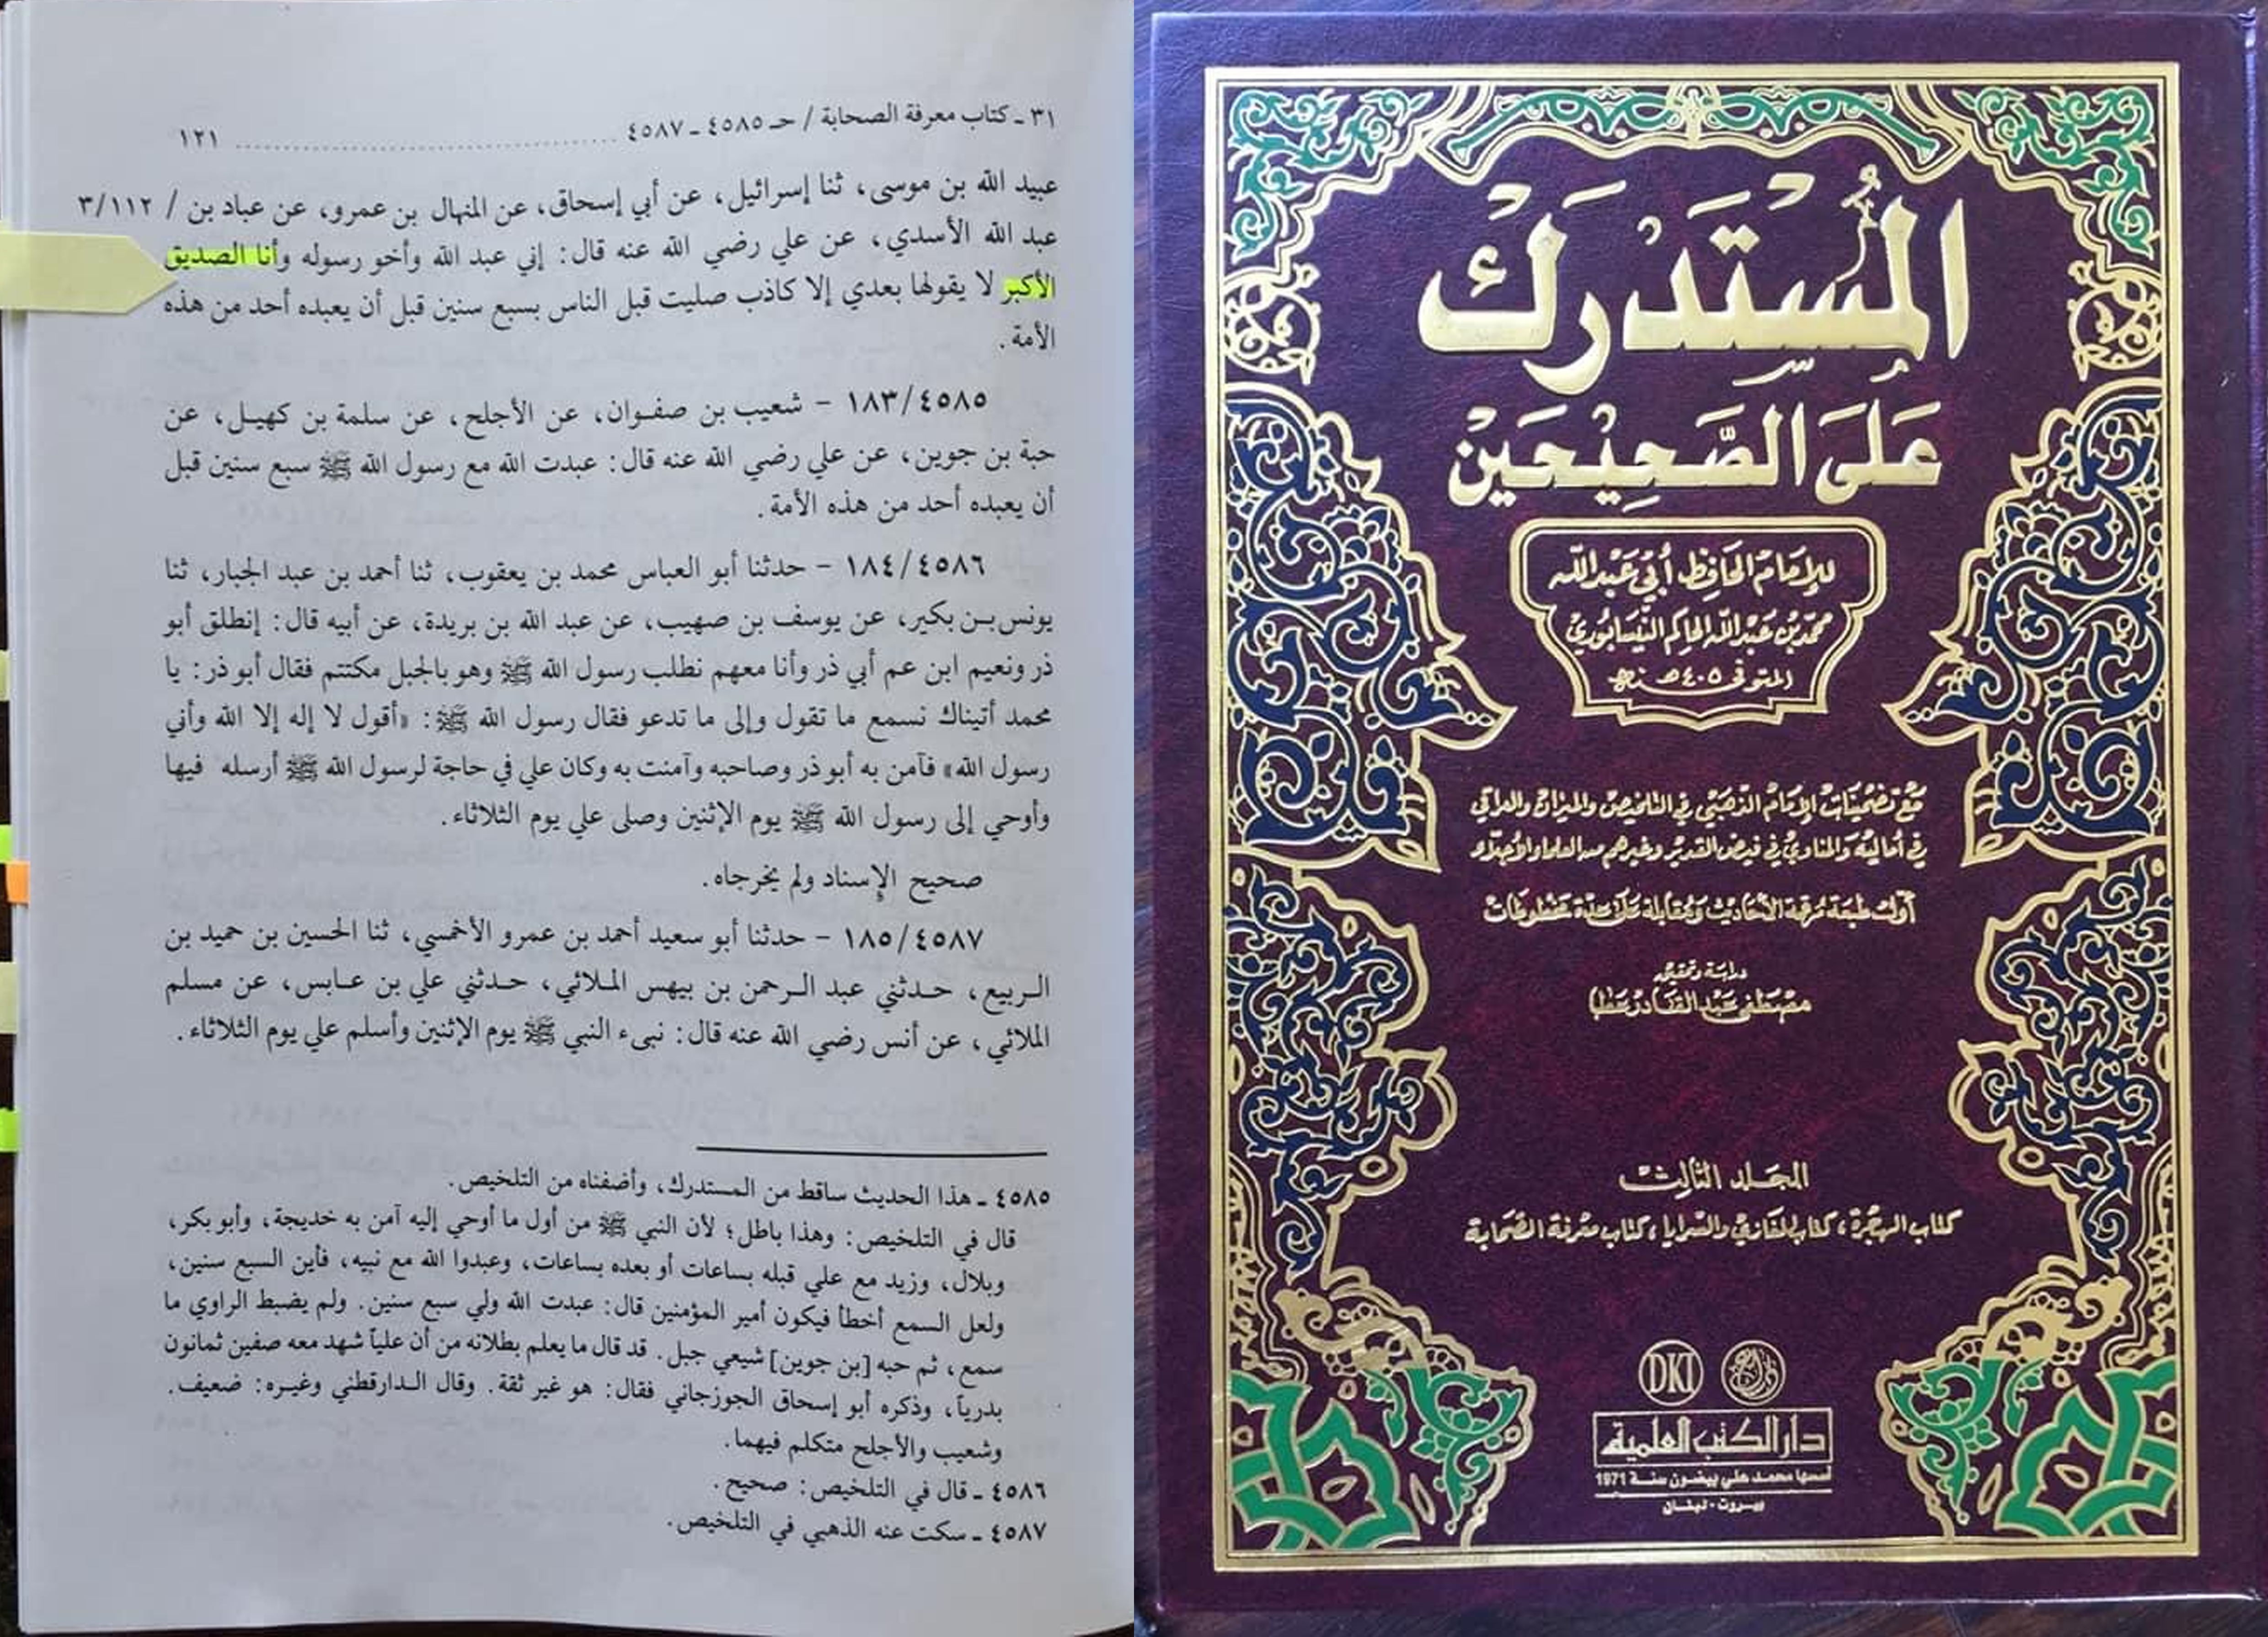 ٣١ ـ كتاب معرفة الصحابة / حـ ٤٥٨٥ ـ ٤٥٨٧ ........................ ١٢١
عبيد الله بن موسى، ثنا إسرائيل، عن أبي إسحاق، عن المنهال بن عمرو، عن عباد بن / ٣/١١٢
عبد الله الأسدي، عن علي رضي الله عنه قال: إني عبد الله وأخو رسوله وأنا الصديق
الأكبر لا يقولها بعدي إلا كاذب صليت قبل الناس بسبع سنين قبل أن يعبده أحد من هذه
الأمة.
١٨٣/٤٥٨٥ - شعيب بن صفوان، عن الأجلح، عن سلمة بن كهيل، عن
حبة بن جوين، عن علي رضي الله عنه قال: عبدت الله مع رسول الله ﷺ سبع سنين قبل
أن يعبده أحد من هذه الأمة.
١٨٤/٤٥٨٦ - حدثنا أبو العباس محمد بن يعقوب، ثنا أحمد بن عبد الجبار، ثنا
يونس بن بكير، عن يوسف بن صهيب، عن عبد الله بن بريدة، عن أبيه قال: إنطلق أبو
ذر ونعيم ابن عم أبي ذر وأنا معهم نطلب رسول الله ﷺ وهو بالجبل مكتتم فقال أبو ذر: يا
محمد أتيناك نسمع ما تقول وإلى ما تدعو فقال رسول الله ﷺ: «أقول لا إله إلا الله وأني
رسول الله» فآمن به أبو ذر وصاحبه وآمنت به وكان علي في حاجة لرسول الله ﷺ أرسله فيها
وأوحي إلى رسول الله ﷺ يوم الإثنين وصلى علي يوم الثلاثاء.
صحيح الإسناد ولم يخرجاه.
١٨٥/٤٥٨٧ - حدثنا أبو سعيد أحمد بن عمرو الأخمسي، ثنا الحسين بن حميد بن
الربيع، حدثني عبد الرحمن بن بيهس الملائي، حدثني علي بن عابس، عن مسلم
الملائي، عن أنس رضي الله عنه قال: نبىء النبي ﷺ يوم الإثنين وأسلم علي يوم الثلاثاء.
٤٥٨٥ ـ هذا الحديث ساقط من المستدرك، وأضفناه من التلخيص.
قال في التلخيص: وهذا باطل؛ لأن النبي ﷺ من أول ما أوحي إليه آمن به خديجة، وأبو بكر،
وبلال، وزيد مع علي قبله بساعات أو بعده بساعات، وعبدوا الله مع نبيه، فأين السبع سنين،
ولعل السمع أخطأ فيكون أمير المؤمنين قال: عبدت الله ولي سبع سنين. ولم يضبط الراوي ما
سمع، ثم حبه [بن جوين] شيعي جبل. قد قال ما يعلم بطلانه من أن علياً شهد معه صفين ثمانون
بدرياً، وذكره أبو إسحاق الجوزجاني فقال: هو غير ثقة. وقال الدارقطني وغيره: ضعيف.
وشعيب والأجلح متكلم فيهما.
٤٥٨٦ ـ قال في التلخيص: صحيح.
٤٥٨٧ ـ سكت عنه الذهبي في التلخيص.
المُسْتَدْرَك
عَلَى الصَّحِيْحَيْن
للإمام الحافظ أبي عبد الله
محمد بن عبد الله الحاكم النيسابوري
المتوفى سنة ٤٠٥ هـ
مع تضمينات الإمام الذهبي في التلخيص والميزان والعراقي
في أماليه والمناوي في فيض القدير وغيرهم من العلماء الأجلاء
أول طبعة مرقمة الأحاديث ومقابلة على عدة مخطوطات
دراسة وتحقيق
مصطفى عبد القادر عطا
المجلد الثالث
كتاب الهجرة، كتاب المغازي والسرايا، كتاب معرفة الصحابة
DKI
دار الكتب العلمية
أسسها محمد علي بيضون سنة 1971
بيروت - لبنان